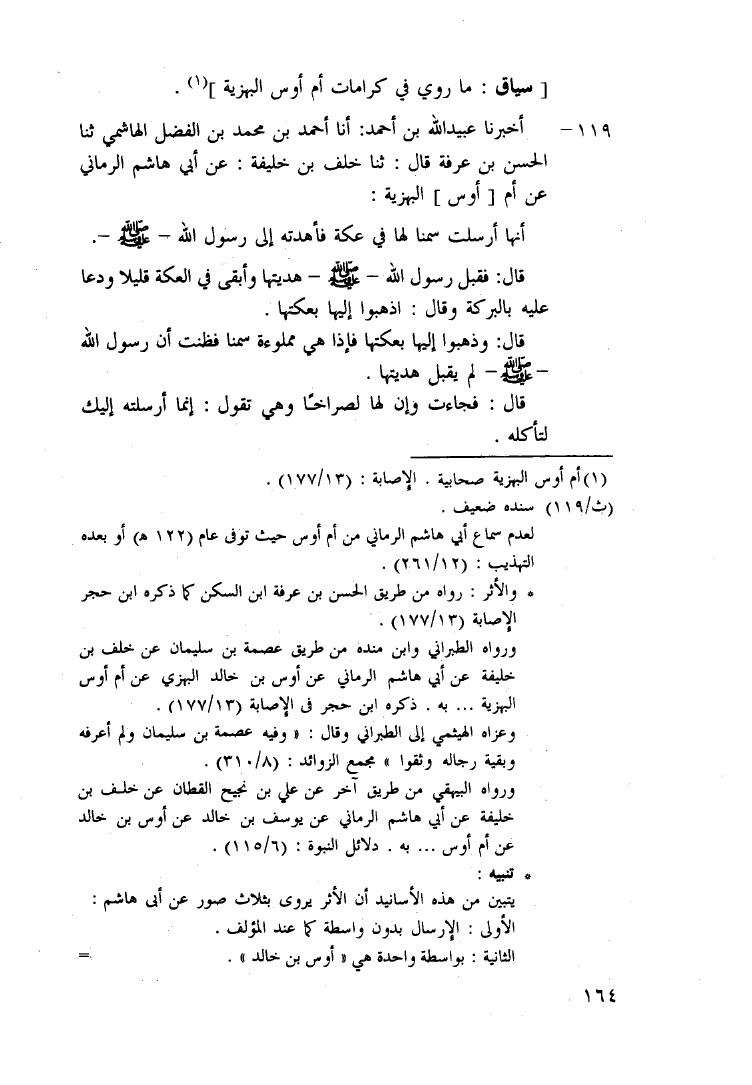 [ سياق : ما روي في كرامات أم أوس البهزية ](١) .
١١٩ – أخبرنا عبيدالله بن أحمد: أنا أحمد بن محمد بن الفضل الهاشمي ثنا
الحسن بن عرفة قال : ثنا خلف بن خليفة : عن أبي هاشم الرماني
عن أم [ أوس ] البهزية :
أنها أرسلت سمنا لها في عكة فأهدته إلى رسول الله – ﷺ –.
قال: فقبل رسول الله – ﷺ – هديتها وأبقى في العكة قليلا ودعا
عليه بالبركة وقال : اذهبوا إليها بعكتها .
قال: وذهبوا إليها بعكتها فإذا هي مملوءة سمنا فظنت أن رسول الله
– ﷺ – لم يقبل هديتها .
قال : فجاءت وإن لها لصراخًا وهي تقول : إنما أرسلته إليك
لتأكله .
(١) أم أوس البهزية صحابية . الإصابة : (١٧٧/١٣) .
(ث/١١٩) سنده ضعيف .
لعدم سماع أبي هاشم الرماني من أم أوس حيث توفى عام (١٢٢ هـ) أو بعده
التهذيب : (٢٦١/١٢) .
* والأثر : رواه من طريق الحسن بن عرفة ابن السكن كما ذكره ابن حجر
الإصابة (١٧٧/١٣) .
ورواه الطبراني وابن منده من طريق عصمة بن سليمان عن خلف بن
خليفة عن أبي هاشم الرماني عن أوس بن خالد البهزي عن أم أوس
البهزية ... به . ذكره ابن حجر فى الإصابة (١٧٧/١٣) .
وعزاه الهيثمي إلى الطبراني وقال : « وفيه عصمة بن سليمان ولم أعرفه
وبقية رجاله وثقوا » مجمع الزوائد : (٣١٠/٨) .
ورواه البيهقي من طريق آخر عن علي بن نجيح القطان عن خلف بن
خليفة عن أبي هاشم الرماني عن يوسف بن خالد عن أوس بن خالد
عن أم أوس ... به . دلائل النبوة : (١١٥/٦) .
* تنبيه :
يتبين من هذه الأسانيد أن الأثر يروى بثلاث صور عن أبى هاشم :
الأولى : الإرسال بدون واسطة كما عند المؤلف .
الثانية : بواسطة واحدة هي « أوس بن خالد » . =
١٦٤